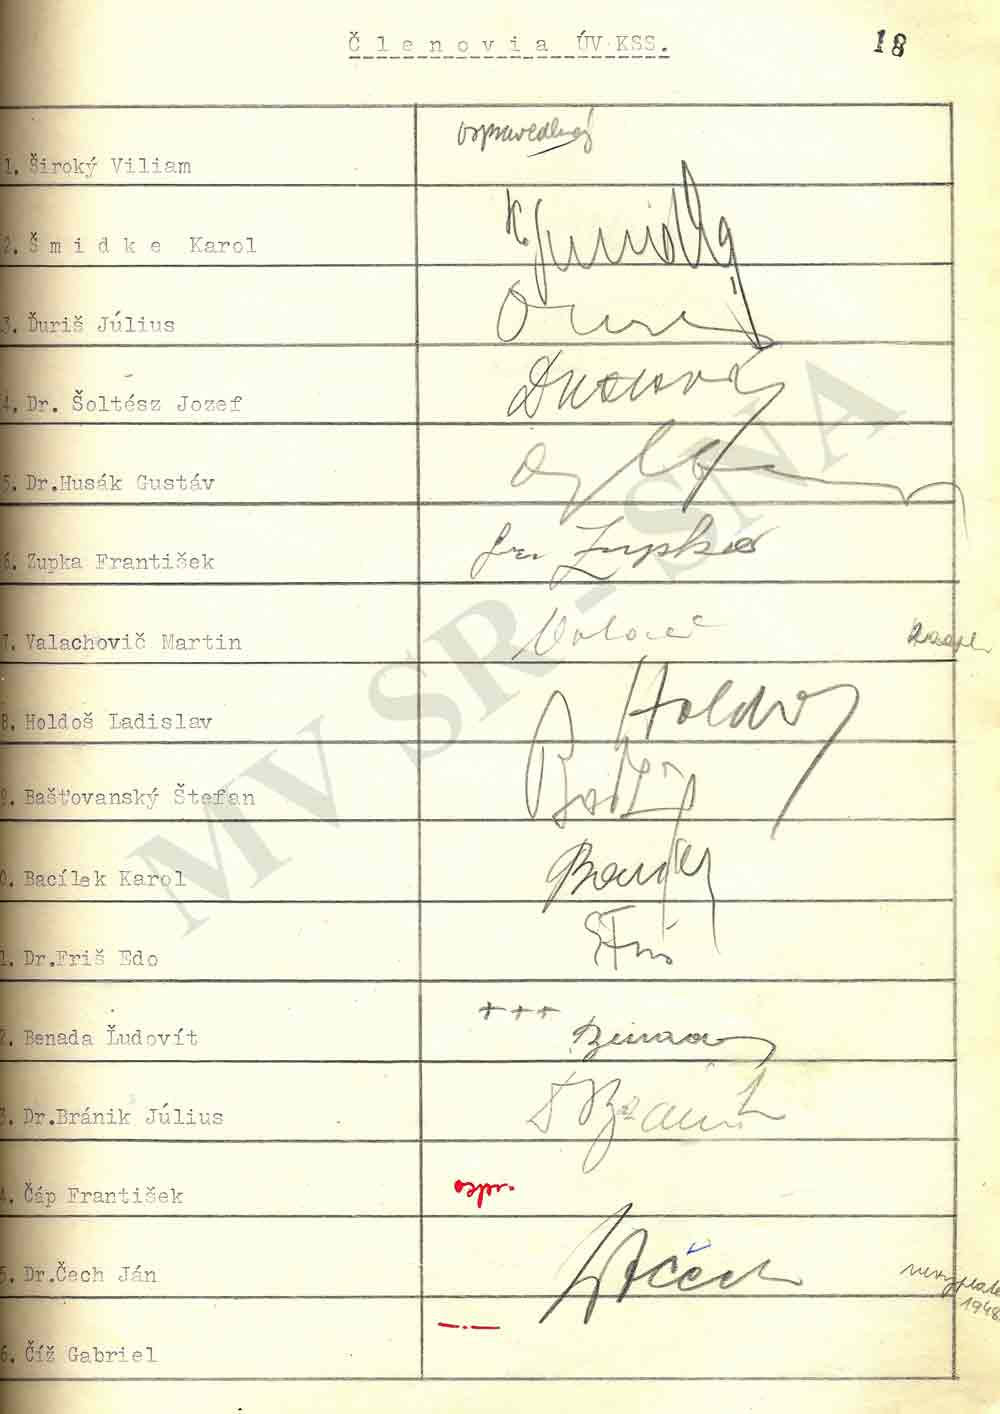 Členovia ÚV KSS.
18
ospravedlnený
1. Široký Viliam
K. Šmidke
2. Šmidke Karol
3. Ďuriš Július
4. Dr. Šoltész Jozef
5. Dr.Husák Gustáv
Zupka
6. Zupka František
7. Valachovič Martin
Holdoš
8. Holdoš Ladislav
9. Bašťovanský Štefan
0. Bacílek Karol
1. Dr.Friš Edo
+++
Benada
2. Benada Ľudovít
3. Dr.Bránik Július
ospr.
4. Čáp František
Čech
5. Dr.Čech Ján
1948
6. Číž Gabriel
MV SR - SNA